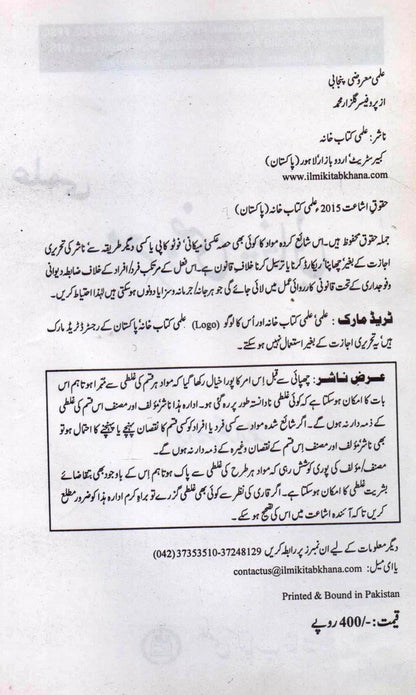 علمی معروضی پنجابی
از پروفیسر گلزار محمد
ناشر: علمی کتاب خانہ
کبیر سٹریٹ' اردو بازار لاہور (پاکستان)
www.ilmikitabkhana.com
حقوقِ اشاعت 2015ء علمی کتاب خانہ (پاکستان)
جملہ حقوق محفوظ ہیں۔ اس شائع کردہ مواد کا کوئی بھی حصہ عکسی' میکانی' فوٹو کاپی یا کسی دیگر طریقہ سے' ناشر کی تحریری
اجازت کے بغیر چھاپنا' ریکارڈ کرنا یا ترسیل کرنا خلافِ قانون ہے۔ اس فعل کے مرتکب فرد/افراد کے خلاف ضابطہ دیوانی
و فوجداری کے تحت قانونی کارروائی عمل میں لائی جائے گی جو ہرجانہ/جرمانہ و سزا یا دونوں ہو سکتی ہیں لہٰذا احتیاط کریں۔
ٹریڈ مارک: علمی' علمی کتاب خانہ اور اُس کا لوگو (Logo) علمی کتاب خانہ' پاکستان کے رجسٹرڈ ٹریڈ مارک
ہیں' یہ تحریری اجازت کے بغیر استعمال نہیں ہو سکتے۔
عرضِ ناشر: چھپائی سے قبل اِس امر کا پورا خیال رکھا گیا کہ مواد ہر قسم کی غلطی سے مبرا ہو تاہم اس
بات کا امکان ہو سکتا ہے کہ کوئی غلطی نادانستہ طور پر رہ گئی ہو۔ ادارہ ہذا' ناشر' مؤلف اور مصنف اس قسم کی غلطی
کے ذمہ دار نہ ہوں گے۔ اگر شائع شدہ مواد سے کسی فرد یا افراد کو کسی قسم کا نقصان پہنچے یا پہنچنے کا احتمال ہو تو
بھی ناشر' مؤلف اور مصنف اِس قسم کے نقصان وغیرہ کے ذمہ دار نہ ہوں گے۔
مصنف/مؤلف کی پوری کوشش رہی کہ مواد ہر طرح کی غلطی سے پاک ہو تاہم اس کے باوجود بھی بتقاضائے
بشریت غلطی کا امکان ہو سکتا ہے۔ اگر قاری کی نظر سے کوئی بھی غلطی گزرے تو براہِ کرم ادارہ ہذا کو ضرور مطلع
کریں تاکہ آئندہ اشاعت میں اس کی تصحیح ہو سکے۔
دیگر معلومات کے لیے ان نمبرز پر رابطہ کریں 37248129-37353510 (042)
یا ای میل: contactus@ilmikitabkhana.com
Printed & Bound in Pakistan
قیمت: -/400 روپے